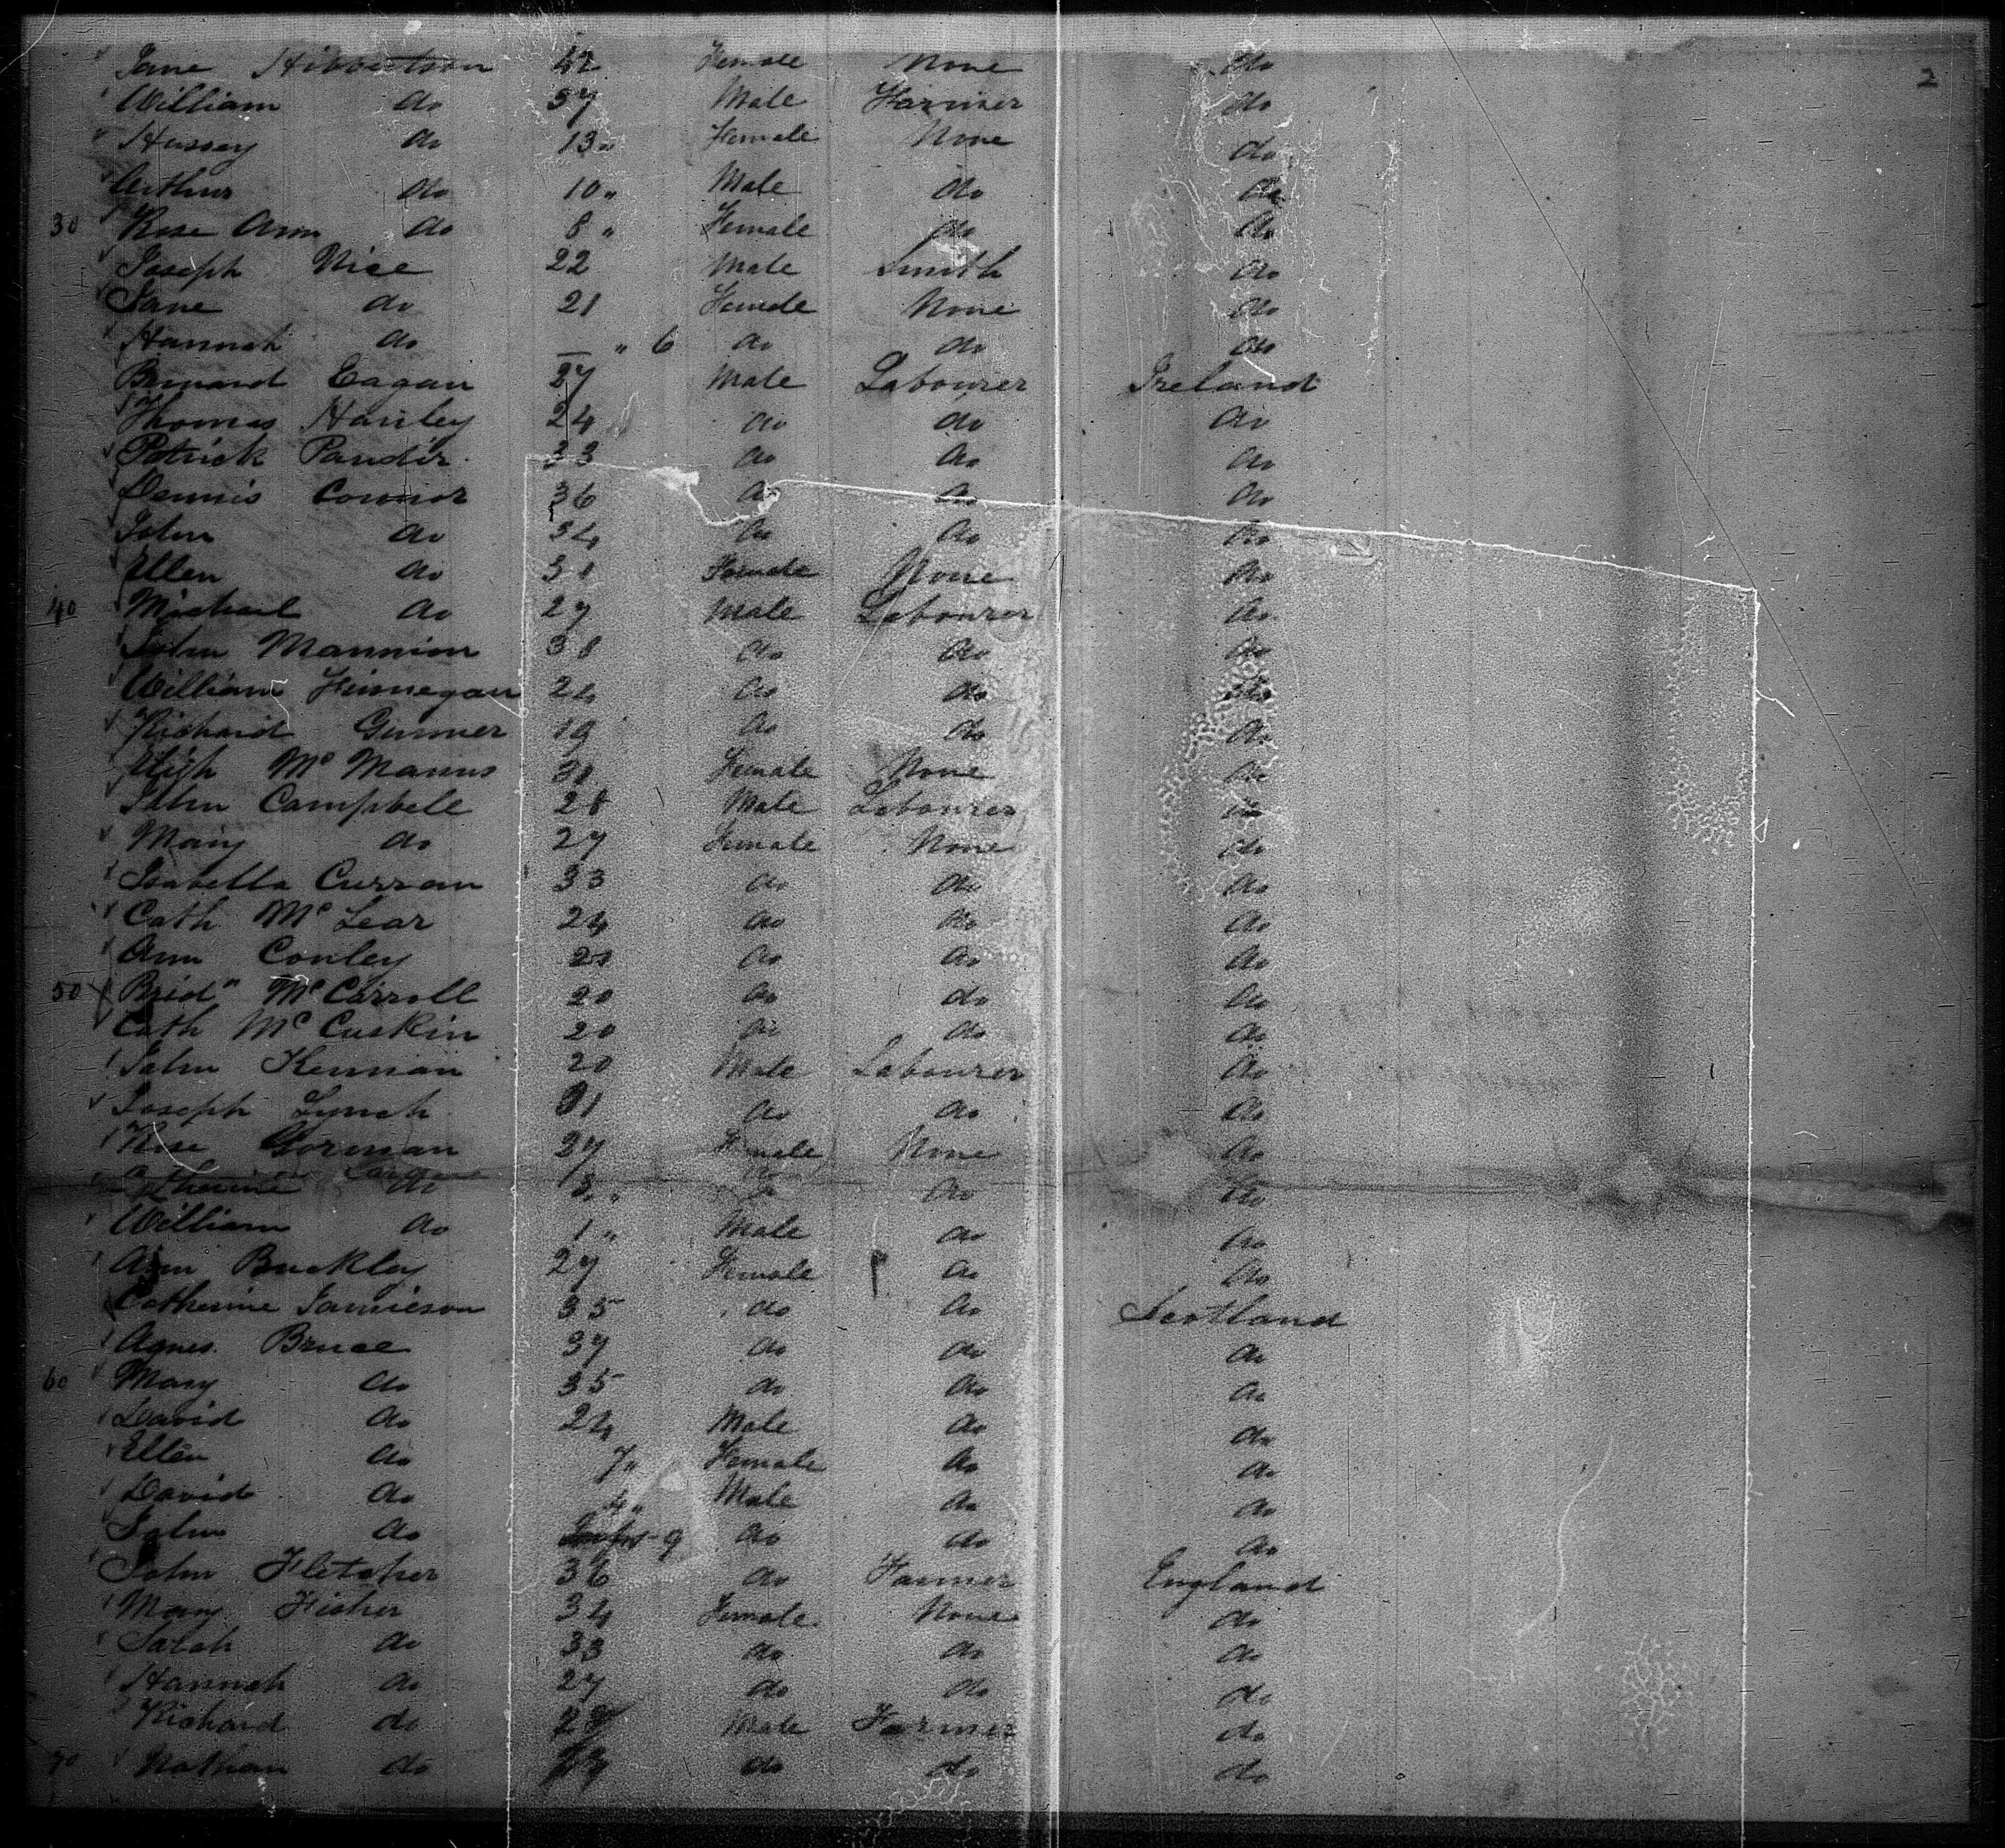 2
Jane Hibbertson 42 Female None do
William do 37 Male Farmer do
Hussey do 13 " Female None do
Arthur do 10 " Male do do
30 Rose Ann do 8 " Female do do
Joseph Nice 22 Male Smith do
Jane do 21 Female None do
Hannah do — " 6 do do do
Bernard Eagan 27 Male Labourer Ireland
Thomas Hanley 24 do do do
Patrick Pandir 33 do do do
Dennis Connor 36 do do do
John do 34 do do do
Ellen do 31 Female None do
40 Michael do 27 Male Labourer do
John Mannion 38 do do do
William Finnegan 24 do do do
Richard Ginner 19 do do do
McManus Female None do
John Campbell 28 Male Labourer do
Mary do 27 Female None do
Isabella Curran 33 do do do
Cath McLear 24 do do do
Ann Conley do do do
50 Brid" McCarroll 20 do do do
Cath McCuskin 20 do do do
John Kennan 20 Male Labourer do
Joseph Lynch do do do
Rose Gorman 27 Female None do
Catherine do 3 " do do do
William do 1 " Male do do
Ann Buckley 27 Female do do
Catherine Jamieson 35 do do Scotland
Agnes Bruce 37 do do do
60 Mary do 35 do do do
David do 24 Male do do
Ellen do 7 " Female do do
David do 4 " Male do do
John do 9 do do do
John Fletcher 36 do Farmer England
Mary Fisher 34 Female None do
Sarah do 33 do do do
Hannah do 27 do do do
Richard do Male Farmer do
70 Nathan do do do do